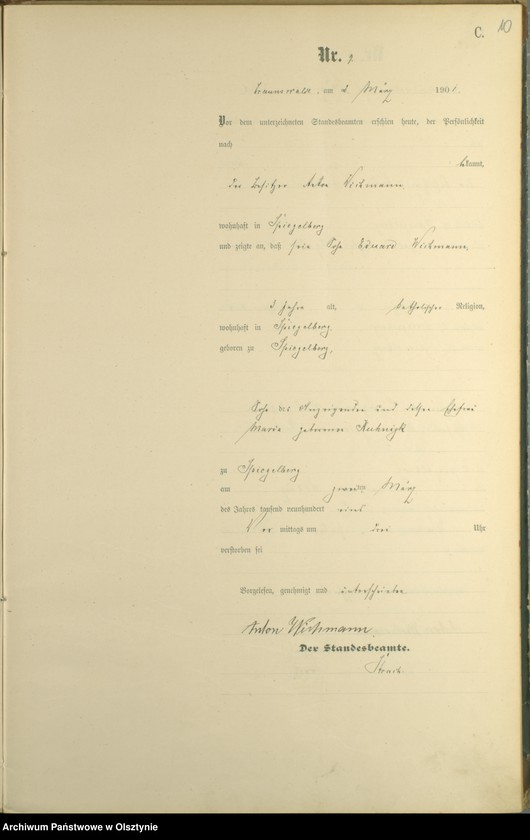 C. 10
Nr. 9
am 2. März 1901.
Vor dem unterzeichneten Standesbeamten erschien heute, der Persönlichkeit
nach
bekannt,
der Besitzer Anton Wichmann,
wohnhaft in Spiegelberg
und zeigte an, daß sein Sohn Eduard Wichmann,
Jahre alt, katholischer Religion,
wohnhaft in Spiegelberg
geboren zu Spiegelberg,
Sohn des Anzeigenden und dessen Ehefrau
Maria geborenen
zu Spiegelberg
am zweiten März
des Jahres tausend neunhundert eins
Vor mittags um drei Uhr
verstorben sei
Vorgelesen, genehmigt und unterschrieben
Anton Wichmann
Der Standesbeamte.
Archiwum Państwowe w Olsztynie